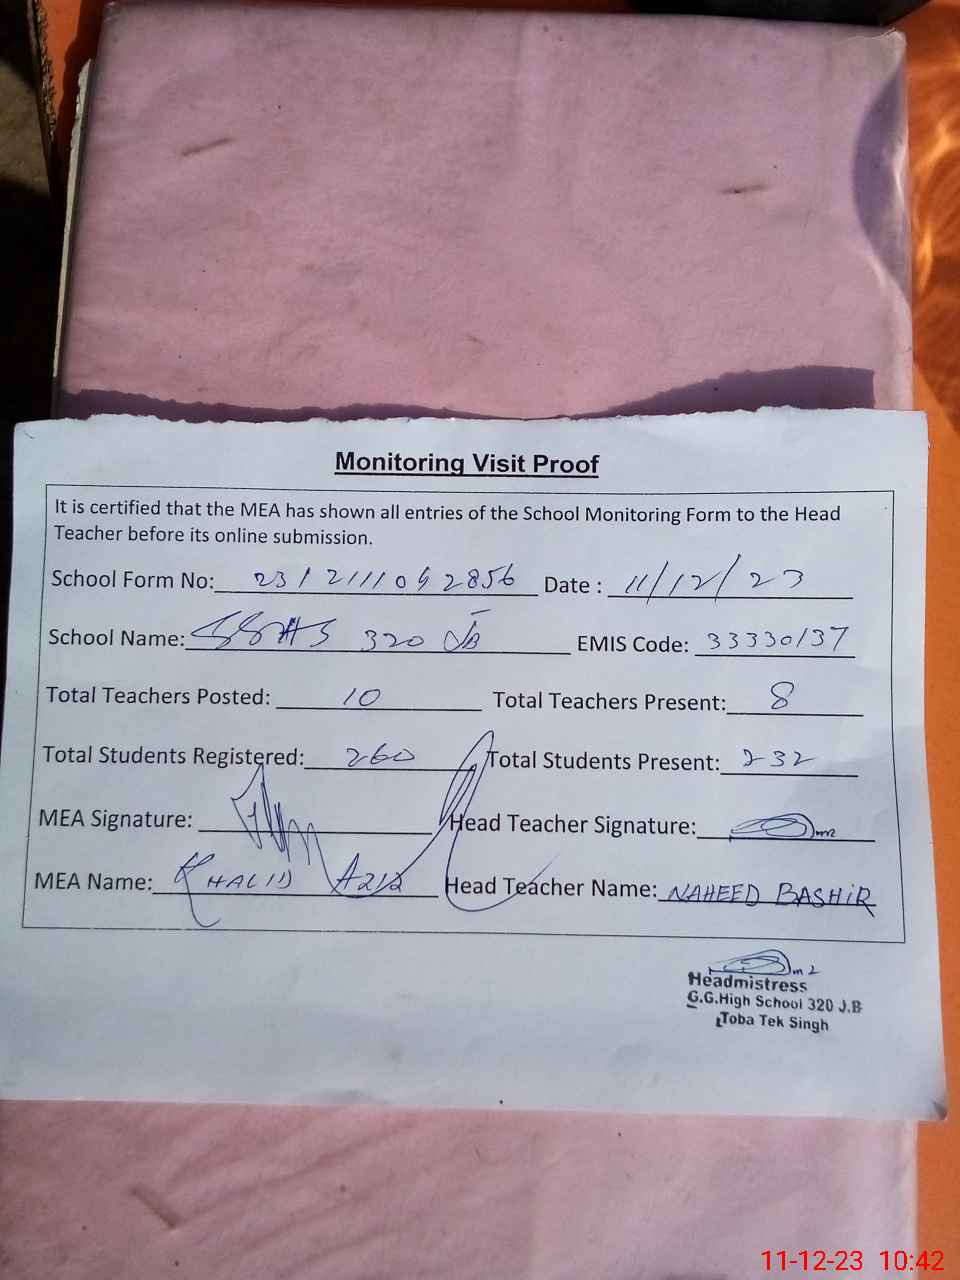 Monitoring Visit Proof
It is certified that the MEA has shown all entries of the School Monitoring Form to the Head
Teacher before its online submission.
School Form No: 231211109 2856 Date : 11/12/23
School Name: GGHS 320 JB EMIS Code: 33330137
Total Teachers Posted: 10 Total Teachers Present: 8
Total Students Registered: 260 Total Students Present: 232
MEA Signature: Head Teacher Signature:
MEA Name: KHALID AZIZ Head Teacher Name: NAHEED BASHIR
Headmistress
G.G.High School 320 J.B
Toba Tek Singh
11-12-23 10:42